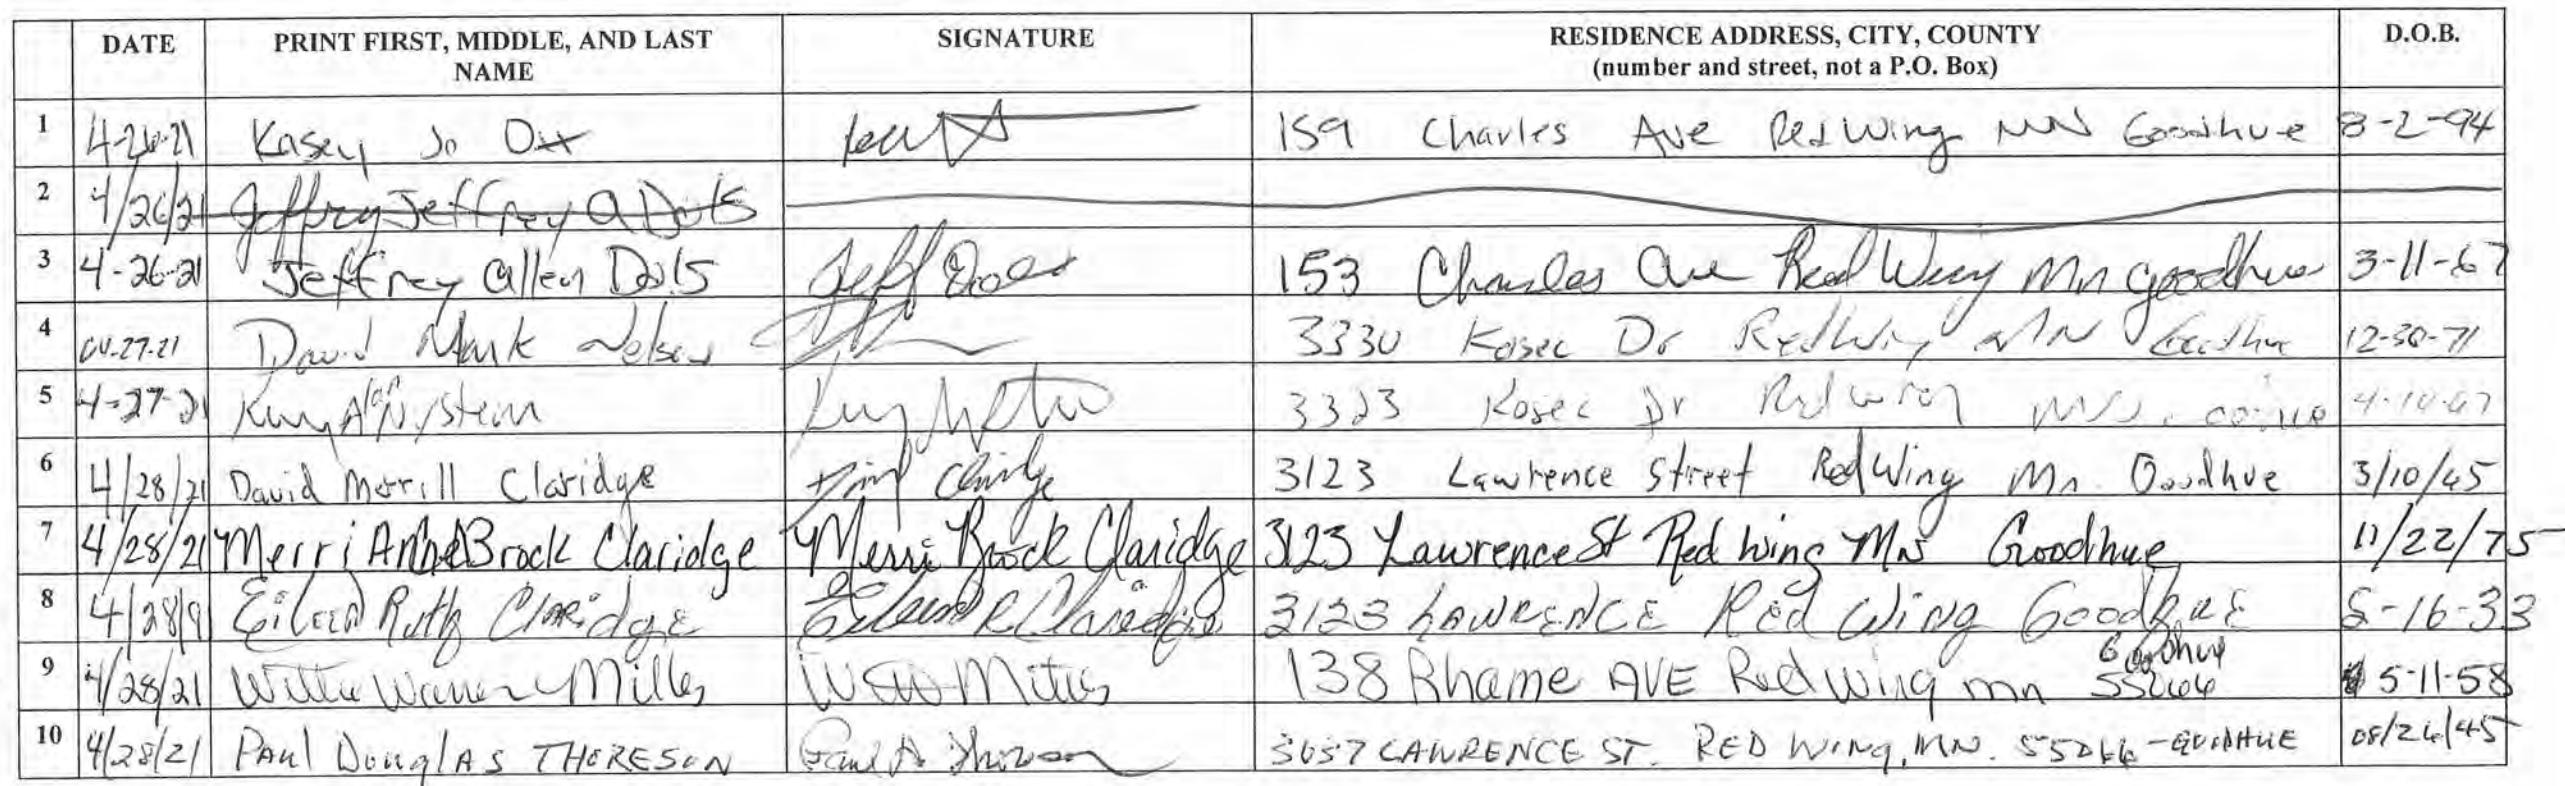 DATE PRINT FIRST, MIDDLE, AND LAST NAME SIGNATURE RESIDENCE ADDRESS, CITY, COUNTY (number and street, not a P.O. Box) D.O.B.
1 4-26-21 Kasey Jo Ott 159 Charles Ave Red Wing MN Goodhue 8-2-94
2 4/26/21 Jeffrey Jeffrey A
3 4-26-21 Jeffrey Allen Jeff 153 Charles Ave Red Wing Mn Goodhue 3-11-67
4 04-27-21 David Mark Nelson 3330 Kosec Dr Red Wing MN Goodhue 12-30-71
5 4-27-21 Alan Nystein 3323 Kosec Dr Red Wing 4-10-67
6 4/28/21 David Merrill Claridge Claridge 3123 Lawrence Street Red Wing Mn. Goodhue 3/10/45
7 4/28/21 Merri Anne Brock Claridge Merri Brock Claridge 3123 Lawrence St Red Wing MN Goodhue 11/22/75
8 Eileen Ruth Claridge Eileen R Claridge 3123 LAWRENCE Red Wing Goodhue 5-16-33
9 4/28/21 Willie Warren Milles 138 Rhame AVE Red Wing mn Goodhue 55066 5-11-58
10 4/28/21 PAul DouglAS THORESON Paul D Thoreson 3057 LAWRENCE ST. RED WING, MN. 55066 - GOODHUE 08/26/45